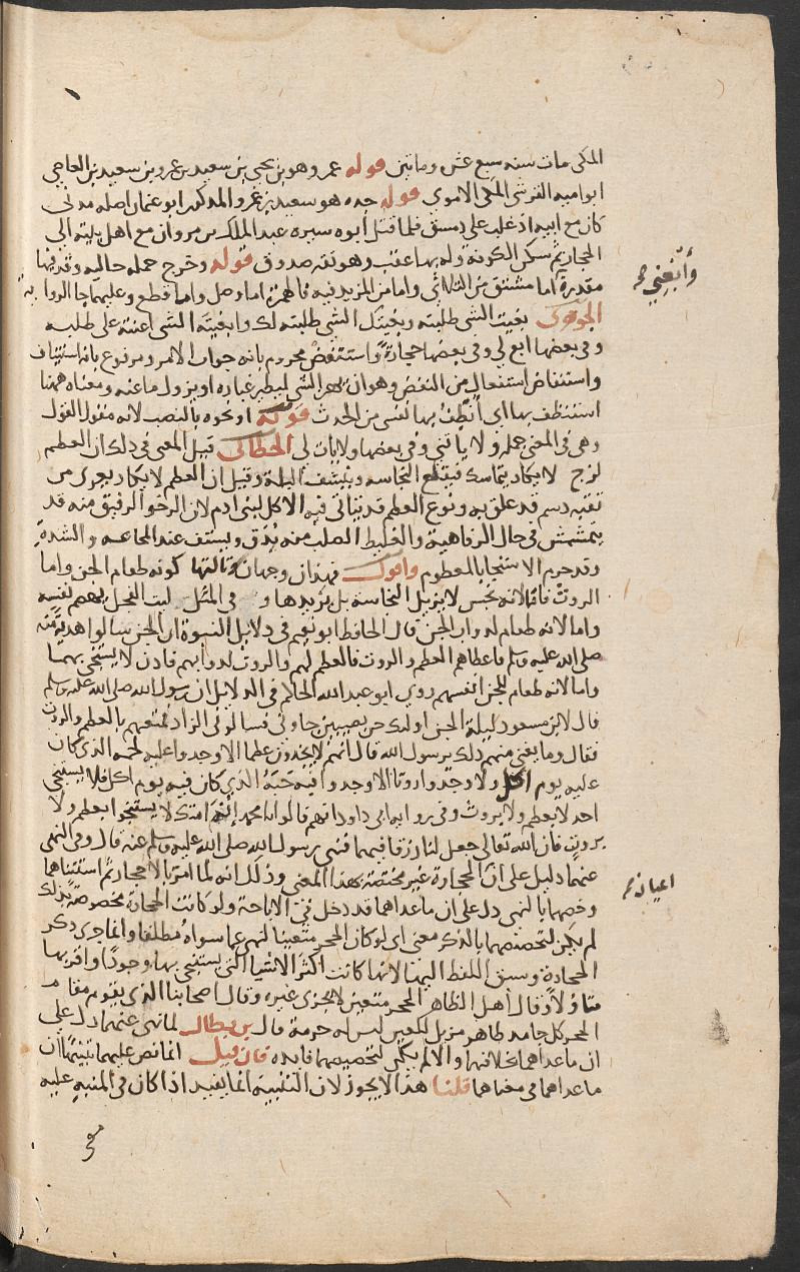 المكى مات سنه سبع عشر ومايتين قوله عمرو هو بن يحيى بن سعيد بن عمرو بن سعيد بن العاصى
ابو اميه القرشى المكى الاموي قوله جده هو سعيد بن عمرو المذكور ابو عثمان اصله مدنى
كان مع ابيه اذ غلب على دمشق فلما قتل أبوه سيره عبد الملك بن مروان مع اهل بيته الى
الحجاز ثم سكن الكوفة وله بها عقب وهو ثقة صدوق قوله وخرج جملة حاليه وقد فيها
مقدرة اما مشتق من الثلاثي واما من المزيد فيه فالهمزة اما وصل واما قطع وعليهما جا الروايه
الجوهرى بغيت الشى طلبته وبغيتك الشى طلبته لك وابغيته الشى اعنته على طلبه
وفى بعضها ابغ لي وفى بعضها حجارة واستنفض مجزوم بانه جواب الامر ومرفوع بانه استيناف
واستنفاض استفعال من النفض وهو ان يهز الشى ليطير غباره او يزول ما عنه ومعناه ههنا
استنظف بها اى أنظف بها نفسى من الحدث قوله او نحوه بالنصب لانه مقول القول
وهى فى المعنى جمله ولا يأتنى وفى بعضها ولا يات لى الخطابى قيل المعنى فى ذلك ان العظم
لزج لا يكاد يتماسك فيقلع النجاسه وينشف البلة وقيل ان العظم لا يكاد يعرى من
بقيه دسم قد علق به ونوع العظم قد يتاتى فيه الاكل لبنى ادم لان الرخو الرقيق منه قد
يتمشمش فى حال الرفاهية والغليظ الصلب منه يدق ويستف عند المجاعه والشدة
وقد حرم الاستنجا بالمطعوم واقول فهذان وجهان وثالثها كونه طعام الجن واما
الروث فاما لانه نجس لا يزيل النجاسه بل يزيدها و فى المثل ليت الفحل يهضم نفسه
واما لانه طعام لدواب الجن قال الحافظ ابو نعيم فى دلايل النبوة ان الجن سالوا هدية منه
صلى الله عليه وسلم فاعطاهم العظم والروث فالعظم لهم والروث لدوابهم فاذن لا يستنجى بهما
واما لانه طعام للجن انفسهم روى ابو عبد الله الحاكم فى الدلايل ان رسول الله صلى الله عليه وسلم
قال لابن مسعود ليلة الجن اوليك جن نصيبين جاوني فسالونى الزاد فمتعهم بالعظم والروث
فقال وما يغنى منهم ذلك يرسول الله قال انهم لا يجدون عظما الا وجدوا عليه لحمه الذى كان
عليه يوم اكل ولا وجدوا روثا الا وجدوا فيه حبه الذي كان فيه يوم اكل فلا يستنجى
احد لا بعظم ولا بروث وفى رواية ابى داود انهم قالوا يا محمد انه امتك لا يستنجوا بعظم ولا
بروث فان الله تعالى جعل لنا رزقا فيهما فنهى رسول الله صلى الله عليه وسلم عنه قال وفى النهى
عنهما دليل على ان الحجارة غير مختصة بهذا المعنى وذلك انه لما امر بالاحجار ثم استثناهما
وخصهما بالنهى دل على ان ما عداهما قد دخل فى الاباحة ولو كانت الحجارة مخصوصة بذلك
لم يكن لتخصيصهما بالذكر معنى اى لو كان الحجر متعينا لنهى عما سواه مطلقا وانما جرى ذكر
الحجارة وسبق اللفظ اليها لانها كانت اكثر الاشيا التى يستنجى بها وجودا واقربها
متناولا وقال أهل الظاهر الحجر متعين لا يجزى غيره وقال اصحابنا الذى يقوم مقام
الحجر كل جامد طاهر مزيل للعين ليس له حرمة قال بن بطال لما نهى عنهما دل على
ان ما عداهما بخلافهما والا لم يكن لتخصيصهما فايده فان قيل انما نص عليهما تنبيها ان
ما عداهما فى معناهما قلنا هذا لا يجوز لان التنبيه انما يفيد اذا كان فى المنبه عليه
وأبغنى
اعيان